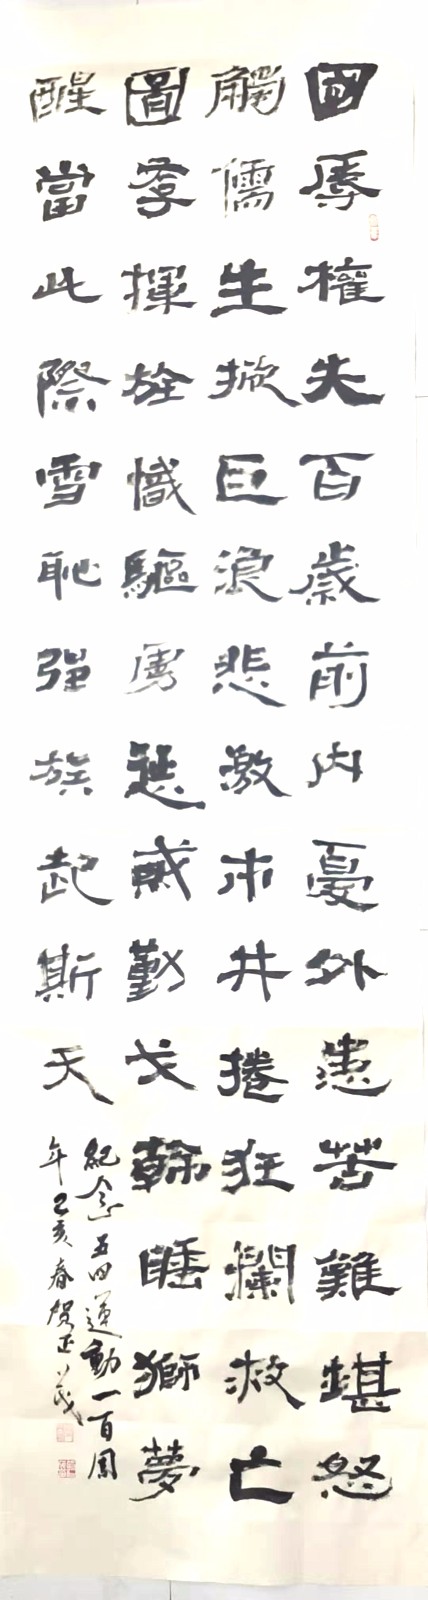 國辱權失百歲前內憂外患苦難堪怒
觸儒生掀巨浪悲激市井捲狂瀾救亡
圖存揮旌幟驅虜懲戒勤戈幹睡獅夢
醒當此際雪恥强族起斯天
紀念五四運動一百周
年己亥春贺正茂